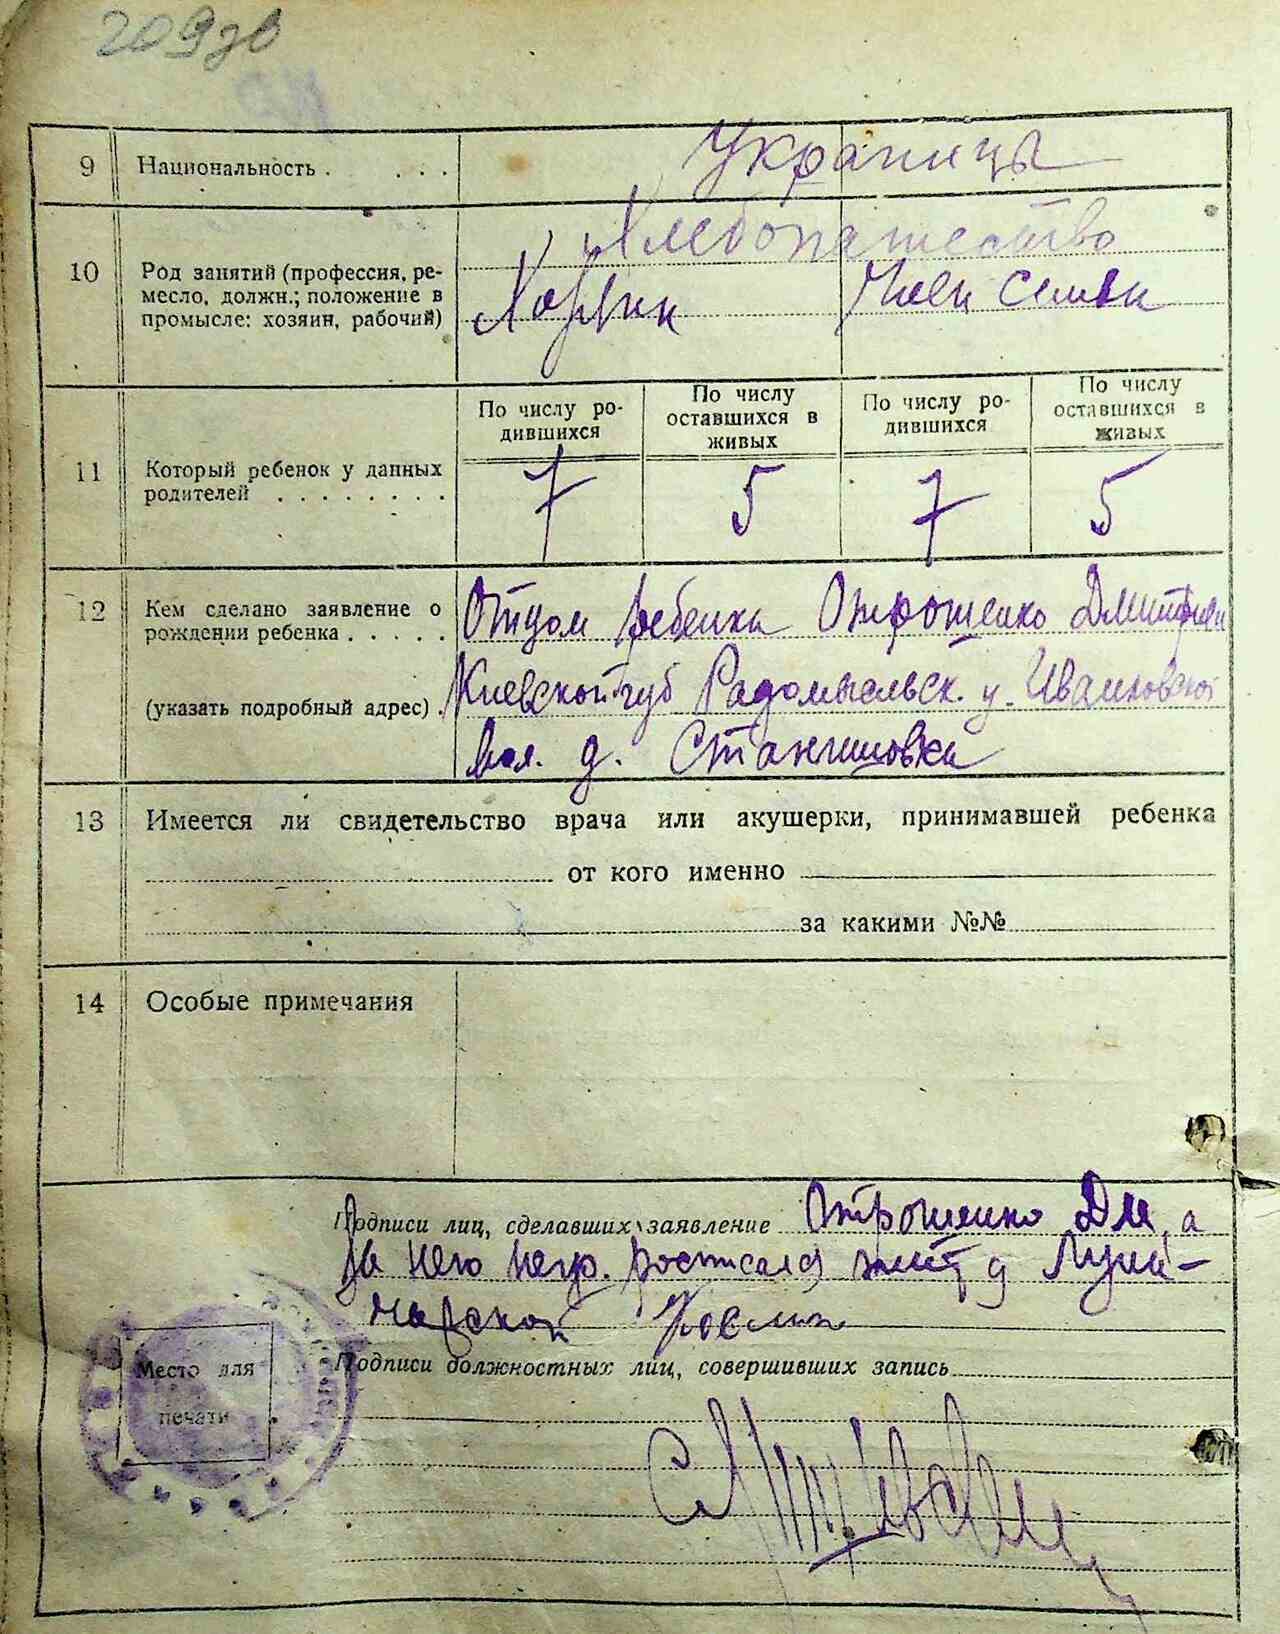 209зв
9 Национальность . . . . Украинцы
Хлебопашество
10 Род занятий (профессия, ре-
месло, должн.; положение в
промысле: хозяин, рабочий)
Хозяин Член семьи
По числу ро-
дившихся
По числу
оставшихся в
живых
По числу ро-
дившихся
По числу
оставшихся в
живых
11 Который ребенок у данных
родителей . . . . . . . .
7 5 7 5
12 Кем сделано заявление о
рождении ребенка . . . . .
(указать подробный адрес) .
Отцом ребенка Отрошенко Дмитрием
Киевской губ Радомысльск. у. Иванковской
вол. д. Станишовки
13 Имеется ли свидетельство врача или акушерки, принимавшей ребенка
от кого именно
за какими №№
14 Особые примечания
Подписи лиц, сделавших заявление Отрошенко Дм, а
за него негр. росписался
Подписи должностных лиц, совершивших запись
Место для
печати